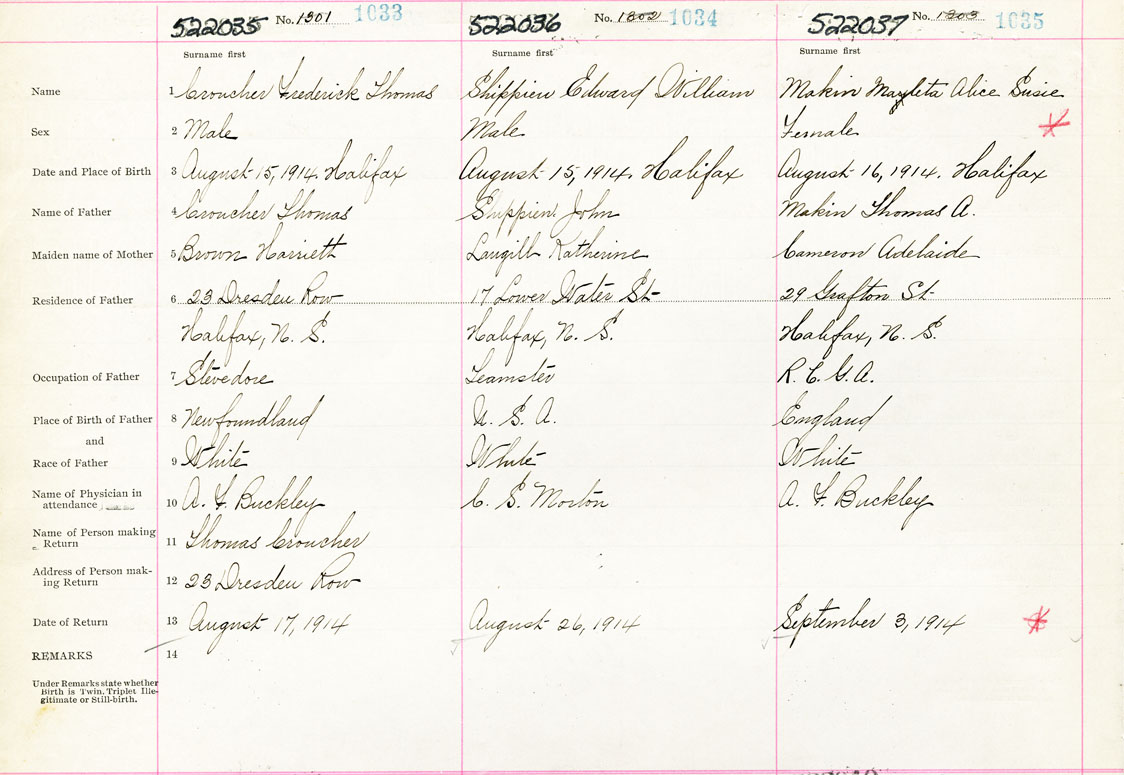 522035 No. 1301 1033 522036 No. 1302 1034 522037 No. 1303 1035
Surname first Surname first Surname first
Name 1 Croucher Frederick Thomas Shippien Edward William Makin Mayleta Alice Susie
Sex 2 Male Male Female
Date and Place of Birth 3 August 15, 1914. Halifax August 15, 1914. Halifax August 16, 1914. Halifax
Name of Father 4 Croucher Thomas Shippien John Makin Thomas A.
Maiden name of Mother 5 Brown Harriett Langill Katherine Cameron Adelaide
Residence of Father 6 23 Dresden Row 17 Lower Water St 29 Grafton St
Halifax, N. S. Halifax, N. S. Halifax, N. S.
Occupation of Father 7 Stevedore Teamster R. C. G. A.
Place of Birth of Father 8 Newfoundland U. S. A. England
and
Race of Father 9 White White White
Name of Physician in
attendance 10 A. F. Buckley C. S. Morton A. F. Buckley
Name of Person making
Return 11 Thomas Croucher
Address of Person mak-
ing Return 12 23 Dresden Row
Date of Return 13 August 17, 1914 August 26, 1914 September 3, 1914
REMARKS 14
Under Remarks state whether
Birth is Twin. Triplet Ille-
gitimate or Still-birth.